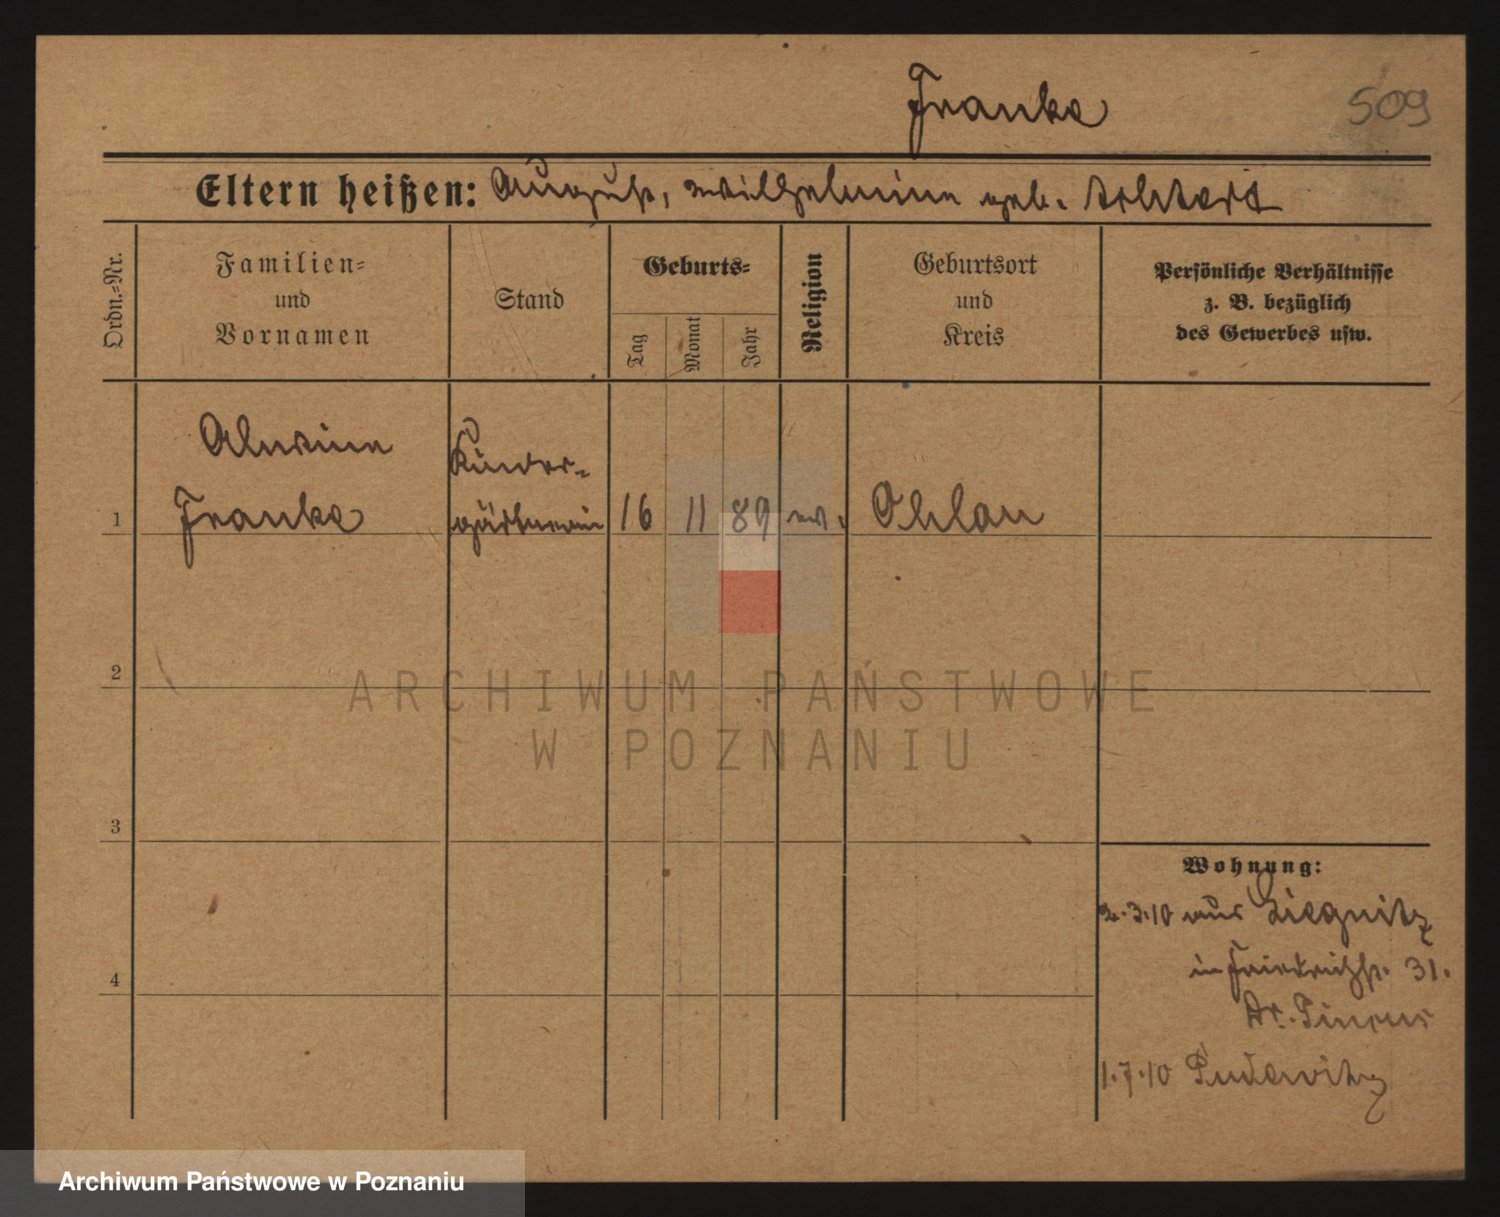 Franke
509
Eltern heißen: August, Wilhelmine geb.
Ordn.-Nr.
Familien-
und
Vornamen
Stand
Geburts-
Tag
Monat
Jahr
Religion
Geburtsort
und
Kreis
Persönliche Verhältnisse
z. B. bezüglich
des Gewerbes usw.
Alwine
Franke
Kinder-
gärtnerin
1
16
11
89
ev.
Ohlau
2
3
4
Wohnung:
2.3.10 aus Liegnitz
in Friedrichst. 31.
Dr. Pincus
1.7.10 Pudewitz
ARCHIWUM PAŃSTWOWE
W POZNANIU
Archiwum Państwowe w Poznaniu